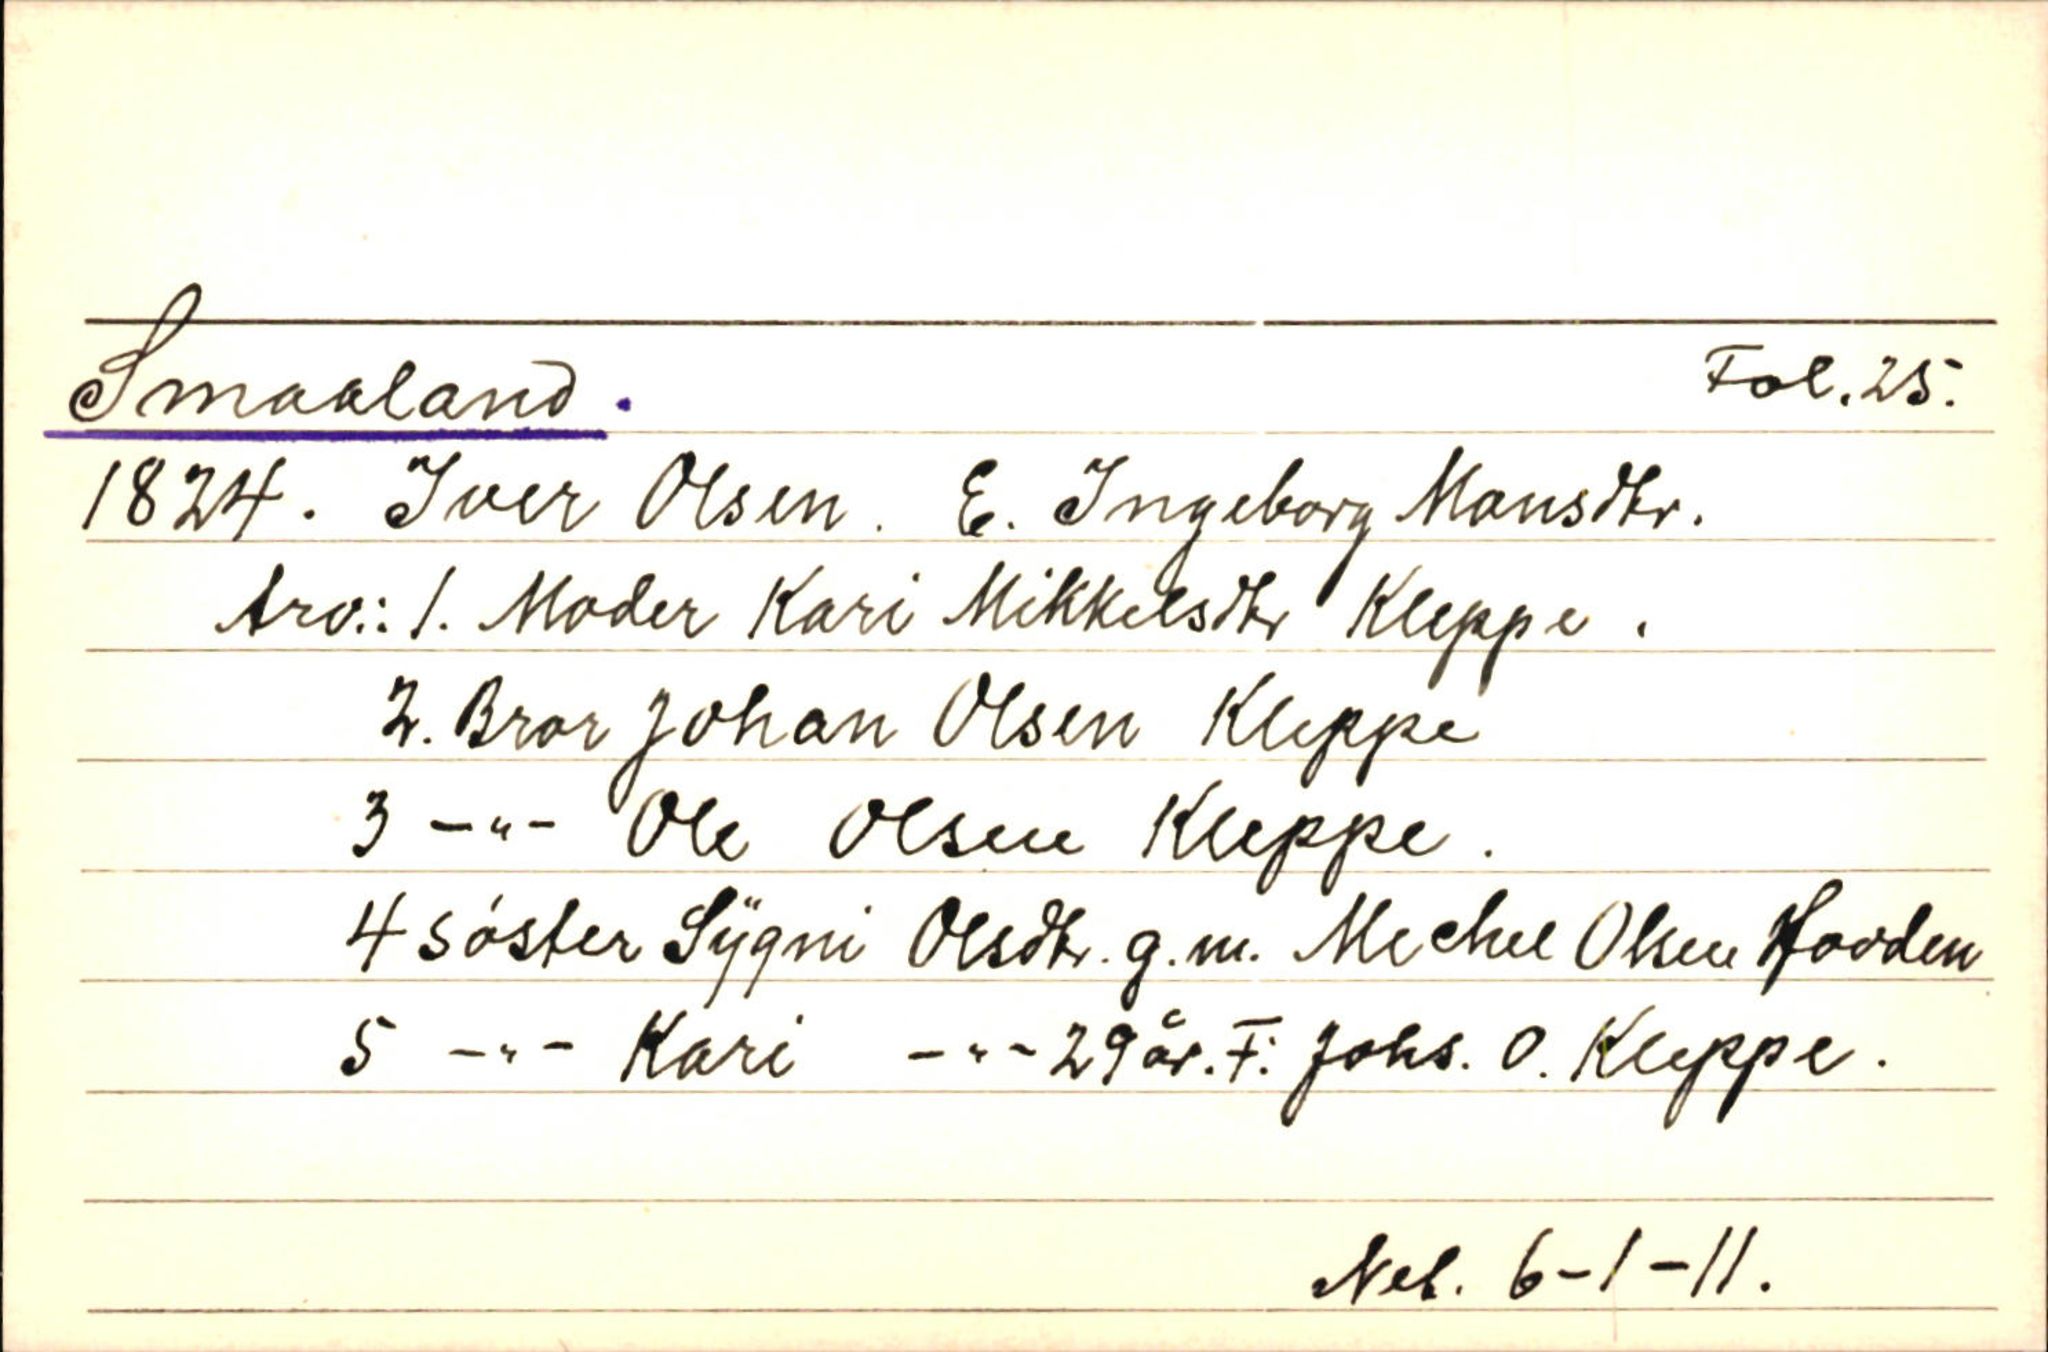 Smaaland. Fol. 25.
1824. Iver Olsen. E. Ingeborg Monsdtr.
Arv.: 1. Moder Kari Mikkelsdtr Kleppe.
2. Bror Johan Olsen Kleppe
3 -"- Ole Olsen Kleppe.
4 söster Sÿgni Olsdtr. g.m. Mechel Olsen Hovden
5 -"- Kari -"- 29 år. F. Johs. O. Kleppe.
Net. 6-1-11.